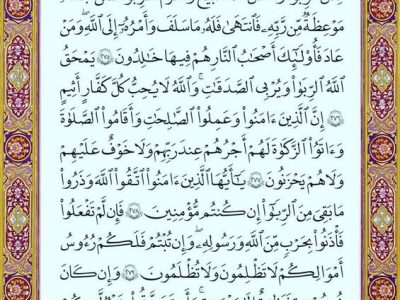 مَوْعِظَةٌ مِّن رَّبِّهِۦ فَٱنتَهَىٰ فَلَهُۥ مَا سَلَفَ وَأَمْرُهُۥٓ إِلَى ٱللَّهِ وَمَنْ
عَادَ فَأُو۟لَٰٓئِكَ أَصْحَٰبُ ٱلنَّارِ هُمْ فِيهَا خَٰلِدُونَ ٢٧٥ يَمْحَقُ
ٱللَّهُ ٱلرِّبَوٰا۟ وَيُرْبِى ٱلصَّدَقَٰتِ وَٱللَّهُ لَا يُحِبُّ كُلَّ كَفَّارٍ أَثِيمٍ
٢٧٦ إِنَّ ٱلَّذِينَ ءَامَنُوا۟ وَعَمِلُوا۟ ٱلصَّٰلِحَٰتِ وَأَقَامُوا۟ ٱلصَّلَوٰةَ
وَءَاتَوُا۟ ٱلزَّكَوٰةَ لَهُمْ أَجْرُهُمْ عِندَ رَبِّهِمْ وَلَا خَوْفٌ عَلَيْهِمْ
وَلَا هُمْ يَحْزَنُونَ ٢٧٧ يَٰٓأَيُّهَا ٱلَّذِينَ ءَامَنُوا۟ ٱتَّقُوا۟ ٱللَّهَ وَذَرُوا۟
مَا بَقِىَ مِنَ ٱلرِّبَوٰٓا۟ إِن كُنتُم مُّؤْمِنِينَ ٢٧٨ فَإِن لَّمْ تَفْعَلُوا۟
فَأْذَنُوا۟ بِحَرْبٍ مِّنَ ٱللَّهِ وَرَسُولِهِۦ وَإِن تُبْتُمْ فَلَكُمْ رُءُوسُ
أَمْوَٰلِكُمْ لَا تَظْلِمُونَ وَلَا تُظْلَمُونَ ٢٧٩ وَإِن كَانَ